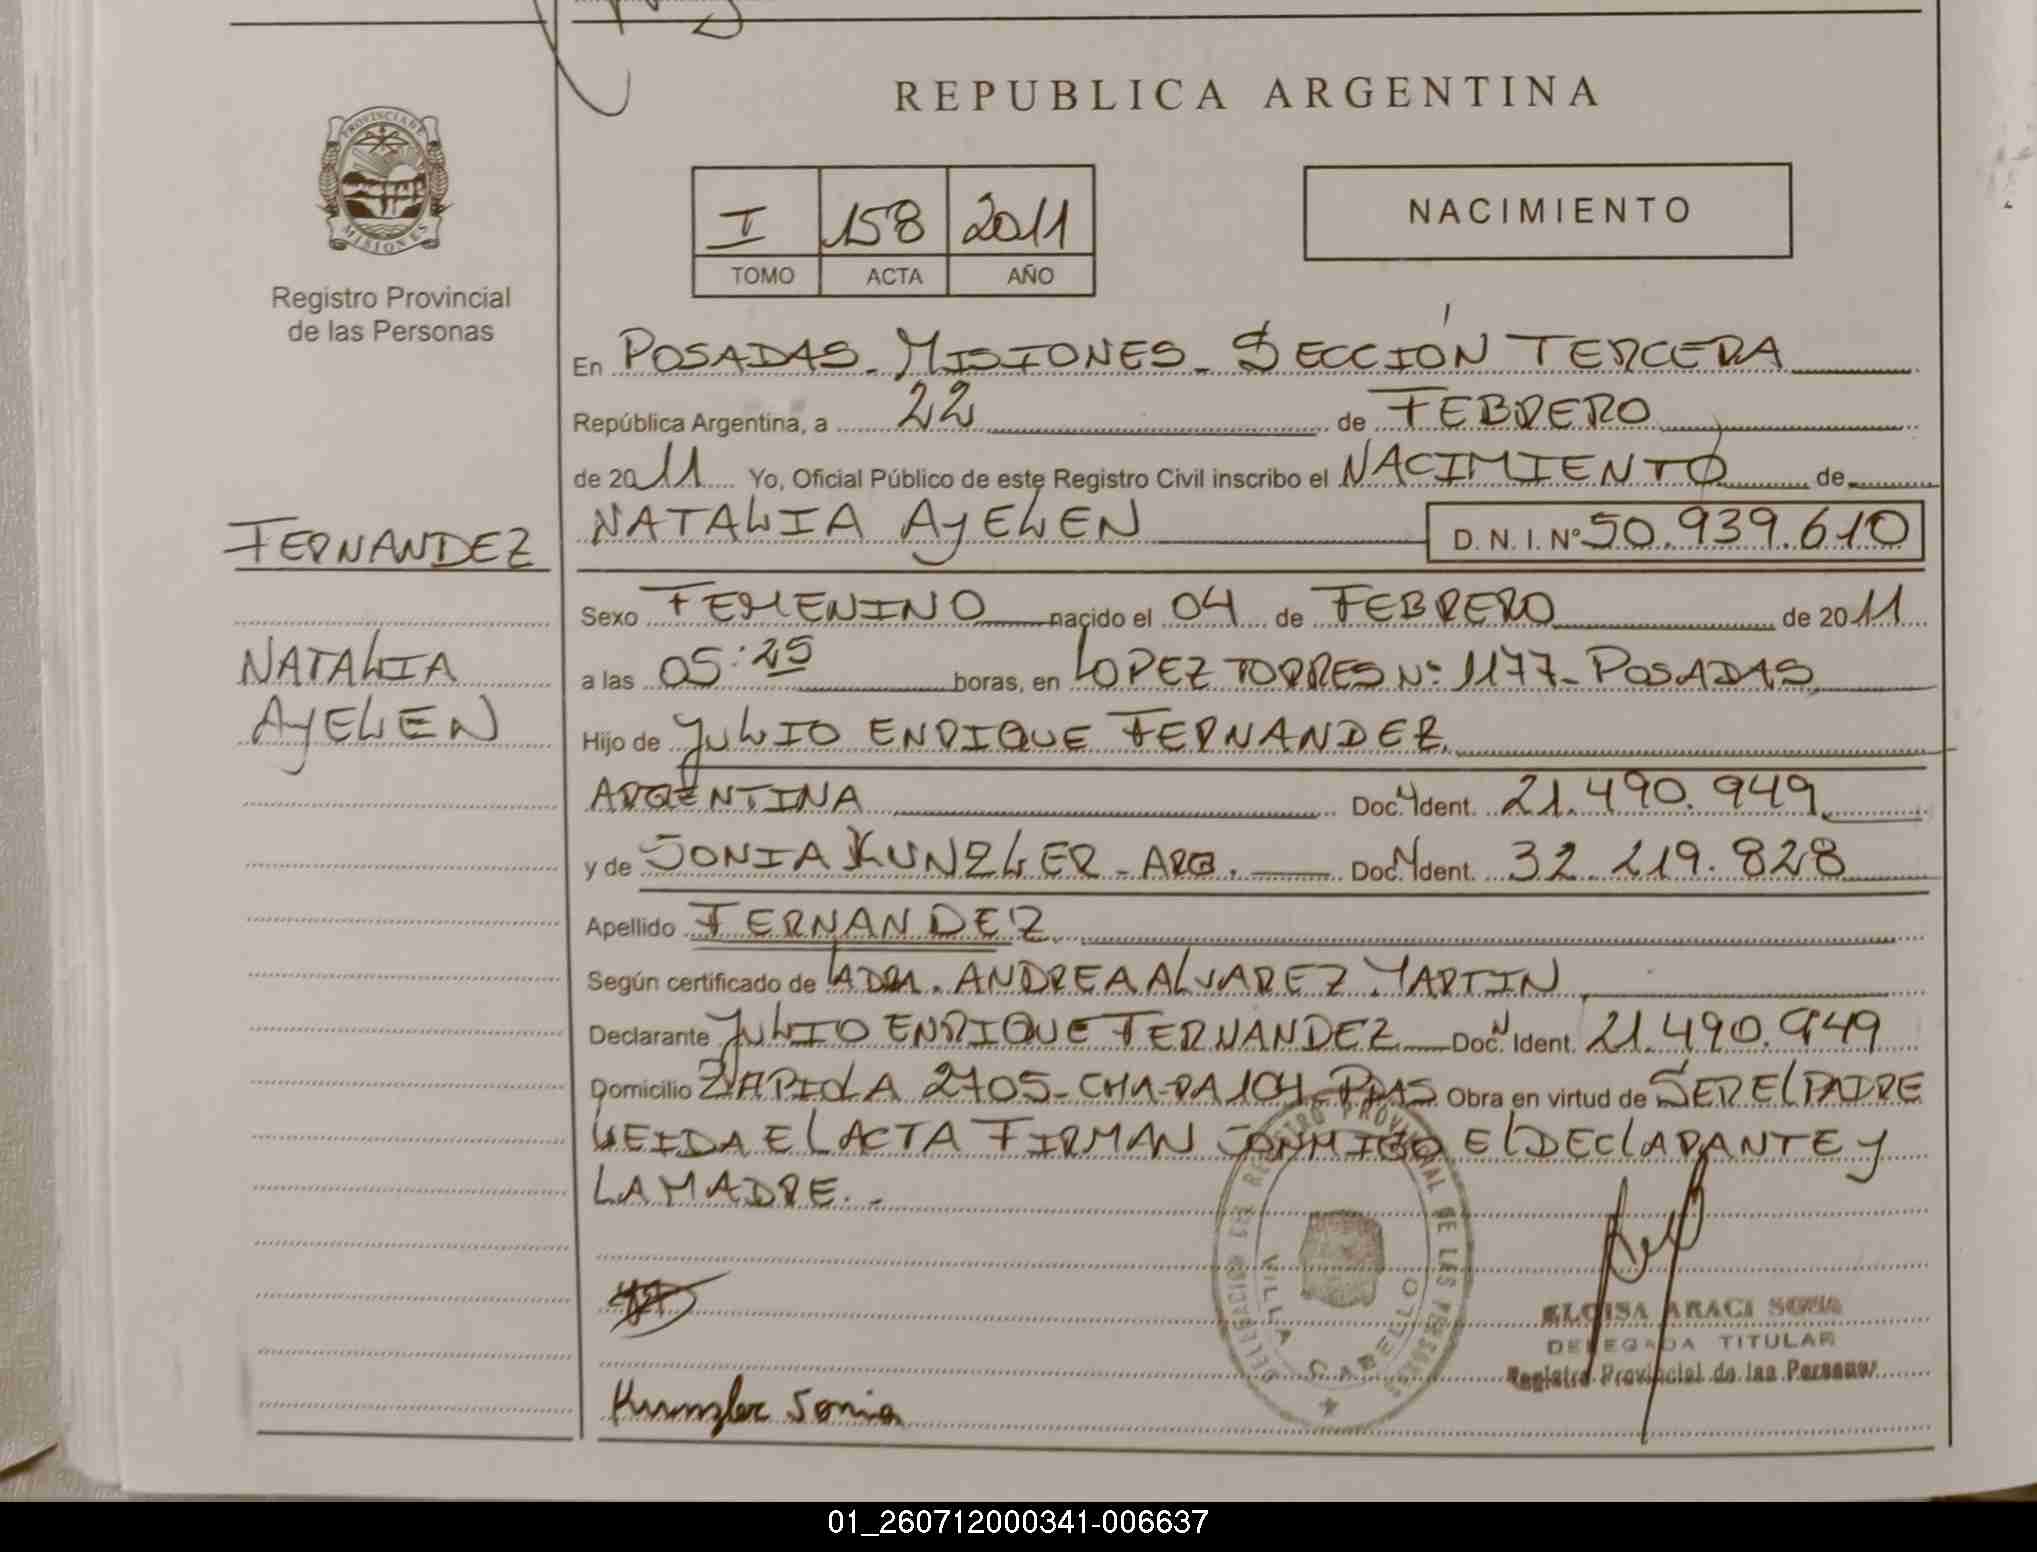 REPUBLICA ARGENTINA
PROVINCIA DE
MISIONES
Registro Provincial
de las Personas
I 158 2011
TOMO ACTA AÑO
NACIMIENTO
En POSADAS - MISIONES - SECCIÓN TERCERA
República Argentina, a 22 de FEBRERO
de 2011 Yo, Oficial Público de este Registro Civil inscribo el NACIMIENTO de
NATALIA AYELEN D. N. I. N° 50.939.610
FERNANDEZ
NATALIA
AYELEN
Sexo FEMENINO nacido el 04 de FEBRERO de 2011
a las 05:25 horas, en LOPEZ TORRES N° 1177 - POSADAS
Hijo de JULIO ENRIQUE FERNANDEZ
ARGENTINA Doc. Ident. 21.490.949
y de SONIA KUNZLER - ARG. Doc. Ident. 32.219.828
Apellido FERNANDEZ
Según certificado de LA DRA. ANDREA ALVAREZ MARTIN
Declarante JULIO ENRIQUE FERNANDEZ Doc. Ident. 21.490.949
Domicilio ZAPIOLA 2705 - CHA-RA 104 - PDAS Obra en virtud de SER EL PADRE
LEIDA EL ACTA FIRMAN CONMIGO EL DECLARANTE Y
LA MADRE. -
DELEGACION DEL REGISTRO PROVINCIAL DE LAS PERSONAS
VILLA CABELLO
ELOISA ARACI SOSA
DELEGADA TITULAR
Registro Provincial de las Personas
Kunzler Sonia
01_260712000341-006637